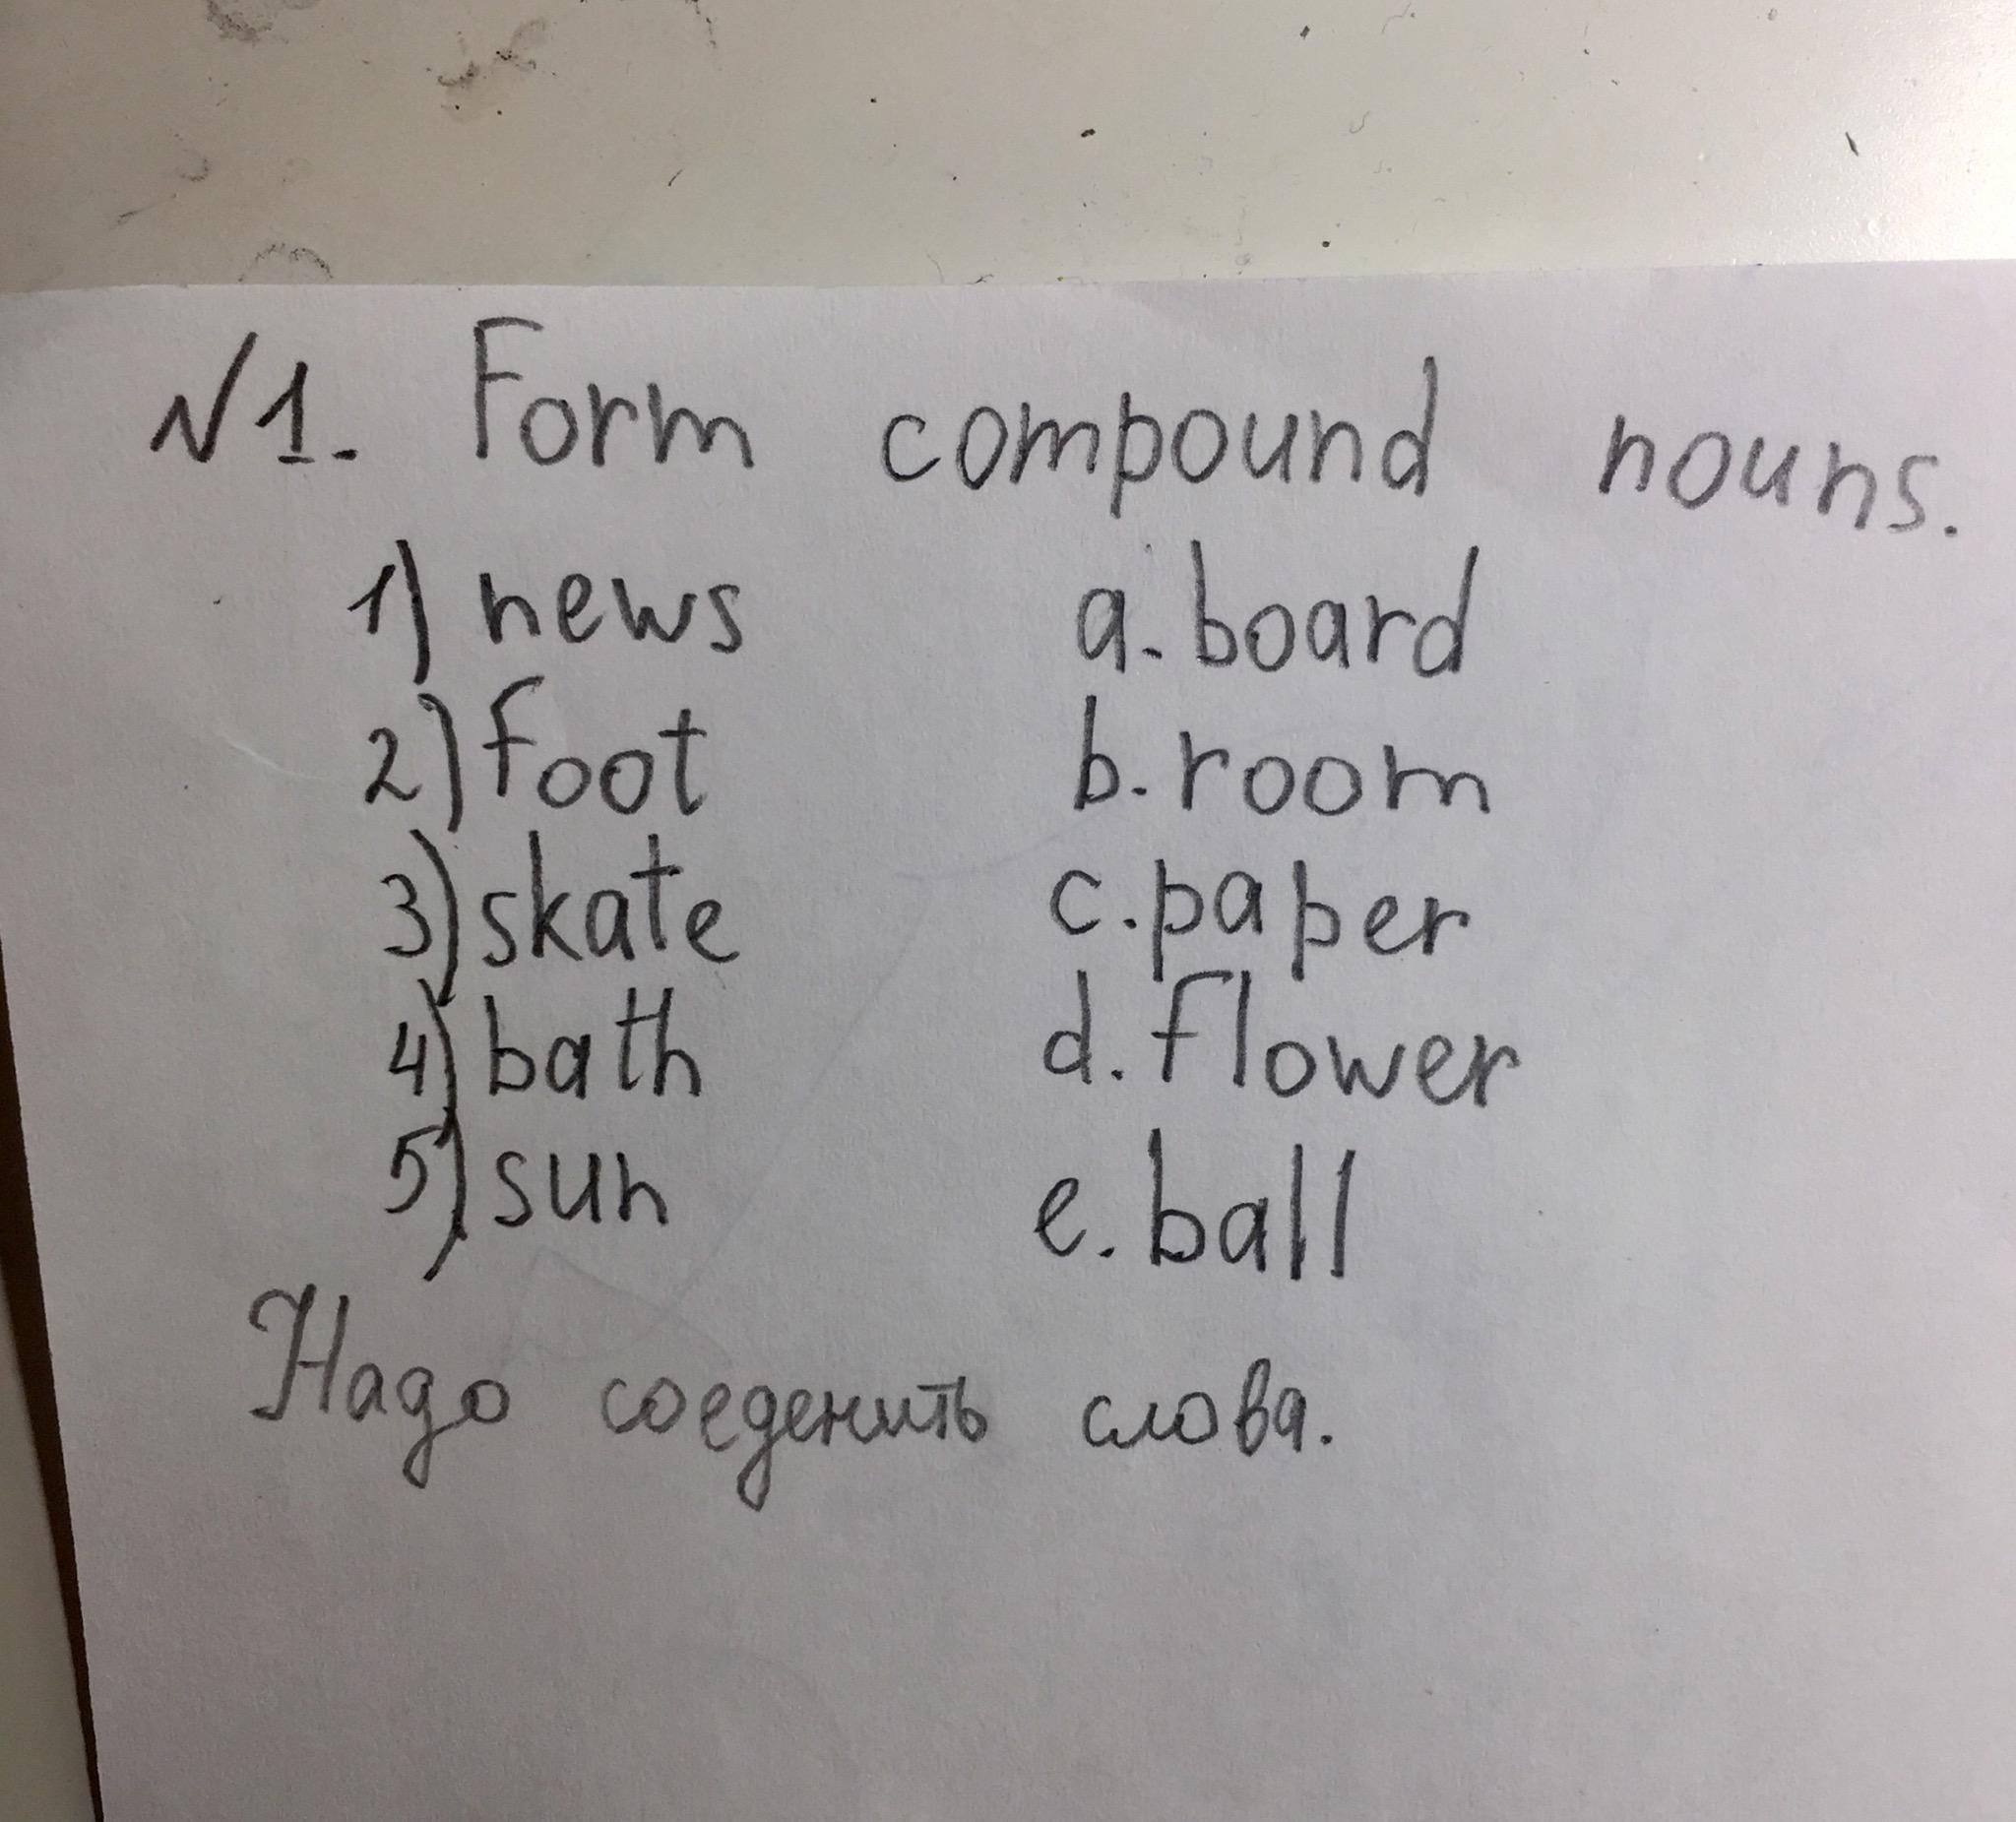 №1. Form compound nouns.
1) news a. board
2) foot b. room
3) skate c. paper
4) bath d. flower
5) sun e. ball
Надо соеденить слова.